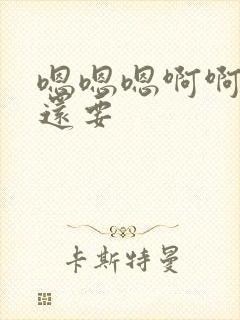 嗯嗯嗯啊啊
還要
卡斯特曼